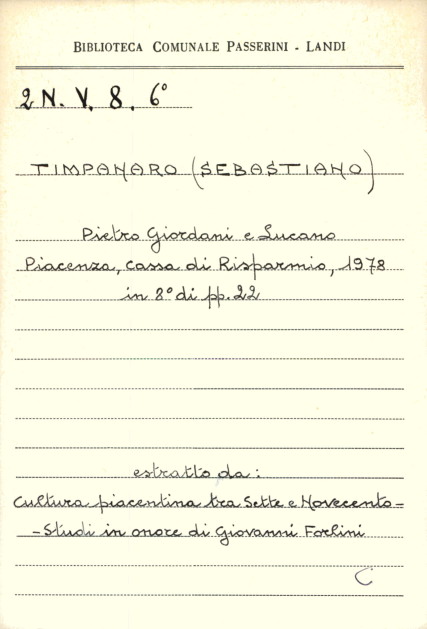 BIBLIOTECA COMUNALE PASSERINI - LANDI
2 N. V. 8. 6°
TIMPANARO (SEBASTIANO)
Pietro Giordani e Lucano
Piacenza, cassa di Risparmio, 1978
in 8° di pp. 22
estratto da:
Cultura piacentina tra Sette e Novecento -
- Studi in onore di Giovanni Forlini
C